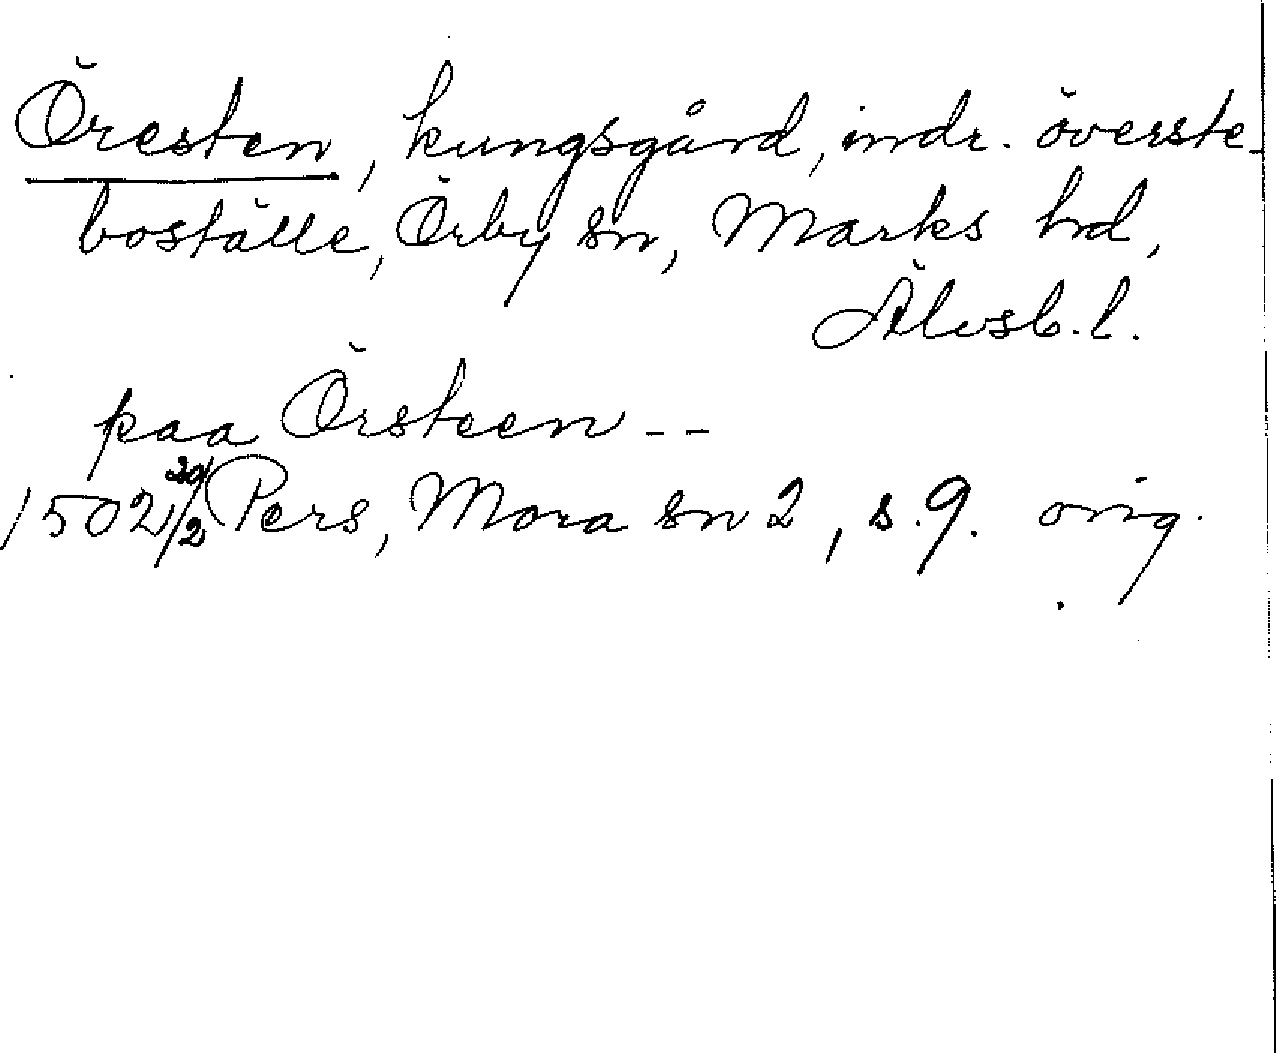 Öresten, kungsgård, indr. överste-
boställe, Örby sn, Marks hd,
Älvsb. l.
paa Örsteen --
1502 29/2 Pers, Mora sn 2, s. 9. orig.